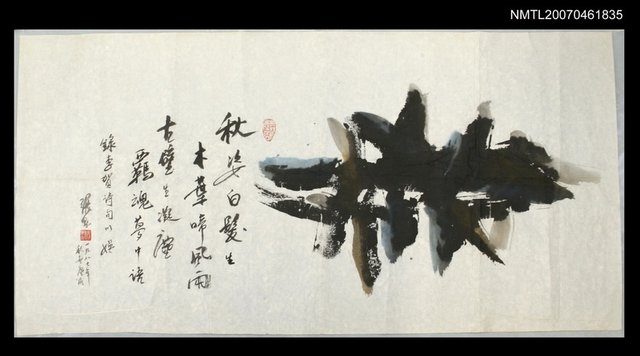 NMTL20070461835
秋姿白髮生
木葉啼風雨
古壁生凝塵
羈魂夢中語
錄李賀詩句